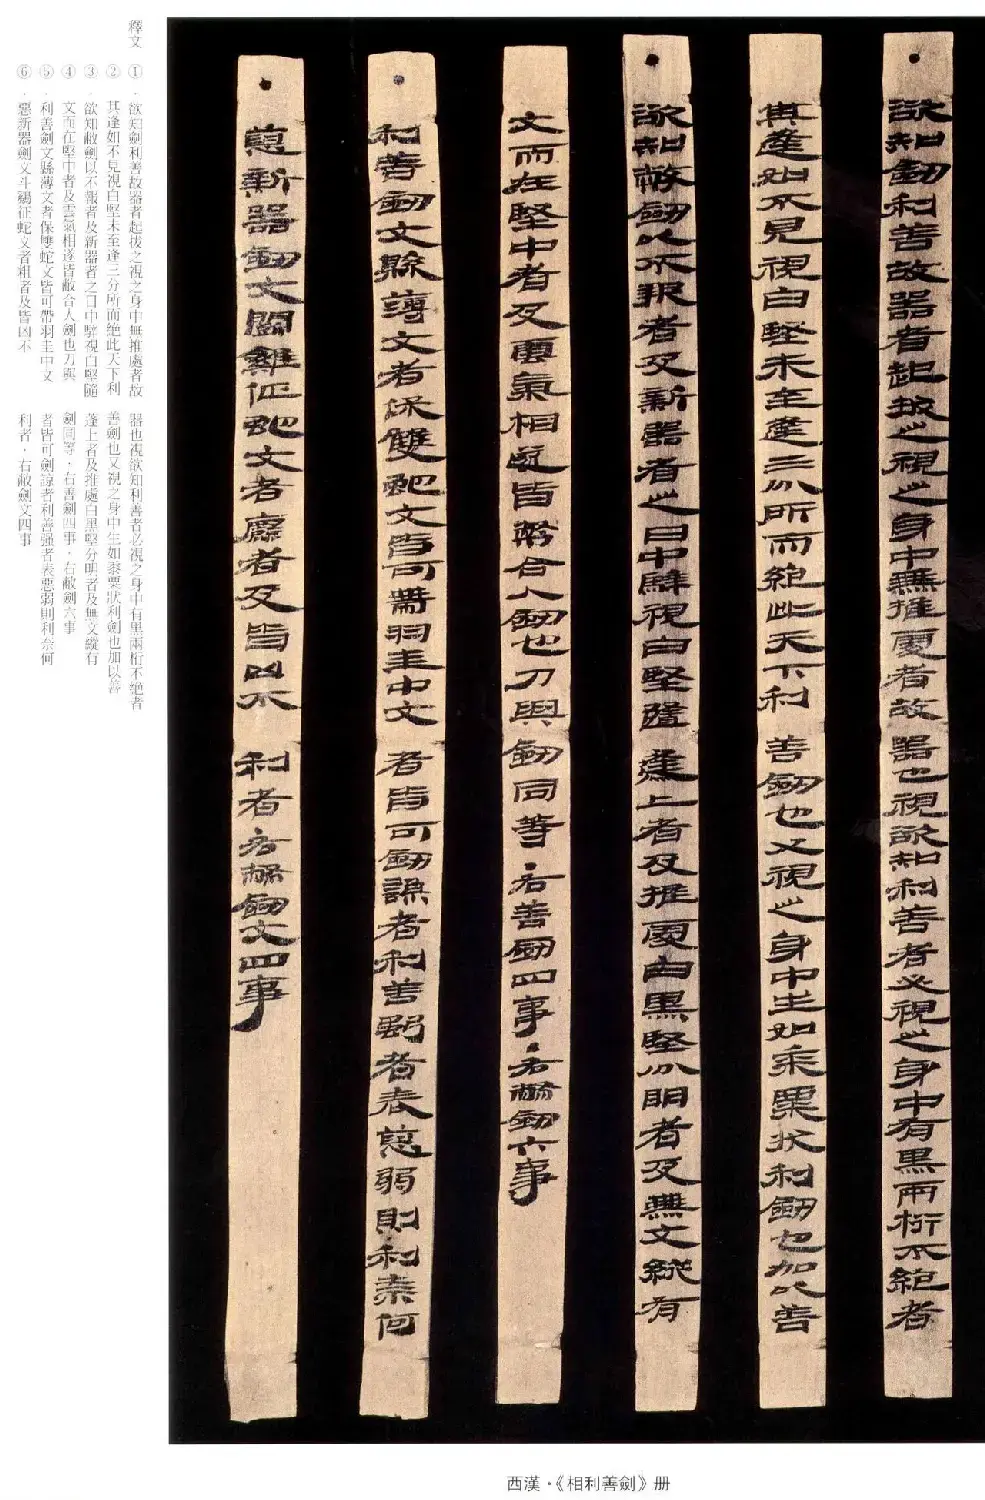 欲知劍利善故器者起拔之視之身中無推處者故器也視欲知利善者必視之身中有黑兩桁不絕者
其逢如不見視白堅未至逢三分所而絕此天下利善劍也又視之身中生如黍粟狀利劍也加以善
欲知敝劍以不報者及新器者之日中騂視白堅隨逢上者及推處白黑堅分明者及無文縱有
文而在堅中者及雲氣相遂皆敝合人劍也刀與劍同等·右善劍四事·右敝劍六事
利善劍文縣薄文者保雙蛇文皆可帶羽圭中文者皆可劍謙者利善強者表惡弱則利奈何
惡新器劍文鬭雞征蛇文者粗者及皆凶不利者右敝劍文四事
釋文
①·欲知劍利善故器者起拔之視之身中無推處者故器也視欲知利善者必視之身中有黑兩桁不絕者
②其逢如不見視白堅未至逢三分所而絕此天下利善劍也又視之身中生如黍粟狀利劍也加以善
③·欲知敝劍以不報者及新器者之日中騂視白堅隨逢上者及推處白黑堅分明者及無文縱有
④文而在堅中者及雲氣相遂皆敝合人劍也刀與劍同等·右善劍四事·右敝劍六事
⑤·利善劍文縣薄文者保雙蛇文皆可帶羽圭中文者皆可劍諒者利善強者表惡弱則利奈何
⑥·惡新器劍文斗鷄征蛇文者粗者及皆凶不利者·右敝劍文四事
西漢·《相利善劍》册